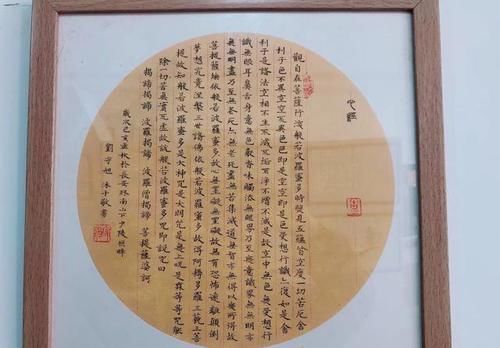 心經
觀自在菩薩行深般若波羅蜜多時照見五蘊皆空度一切苦厄舍
利子色不異空空不異色色即是空空即是色受想行識亦復如是舍
利子是諸法空相不生不滅不垢不淨不增不減是故空中無色無受想行
識無眼耳鼻舌身意無色聲香味觸法無眼界乃至無意識界無無明亦
無無明盡乃至無老死亦無老死盡無苦集滅道無智亦無得以無所得故
菩提薩埵依般若波羅蜜多故心無罣礙無罣礙故無有恐怖遠離顛倒
夢想究竟涅槃三世諸佛依般若波羅蜜多故得阿耨多羅三藐三菩
提故知般若波羅蜜多是大神咒是大明咒是無上咒是無等等咒能
除一切苦真實不虛故說般若波羅蜜多咒即說咒曰
揭諦揭諦 波羅揭諦 波羅僧揭諦 菩提薩婆訶
歲次己亥秋於長安終南山下少陵畔
劉守旭 沐手敬書